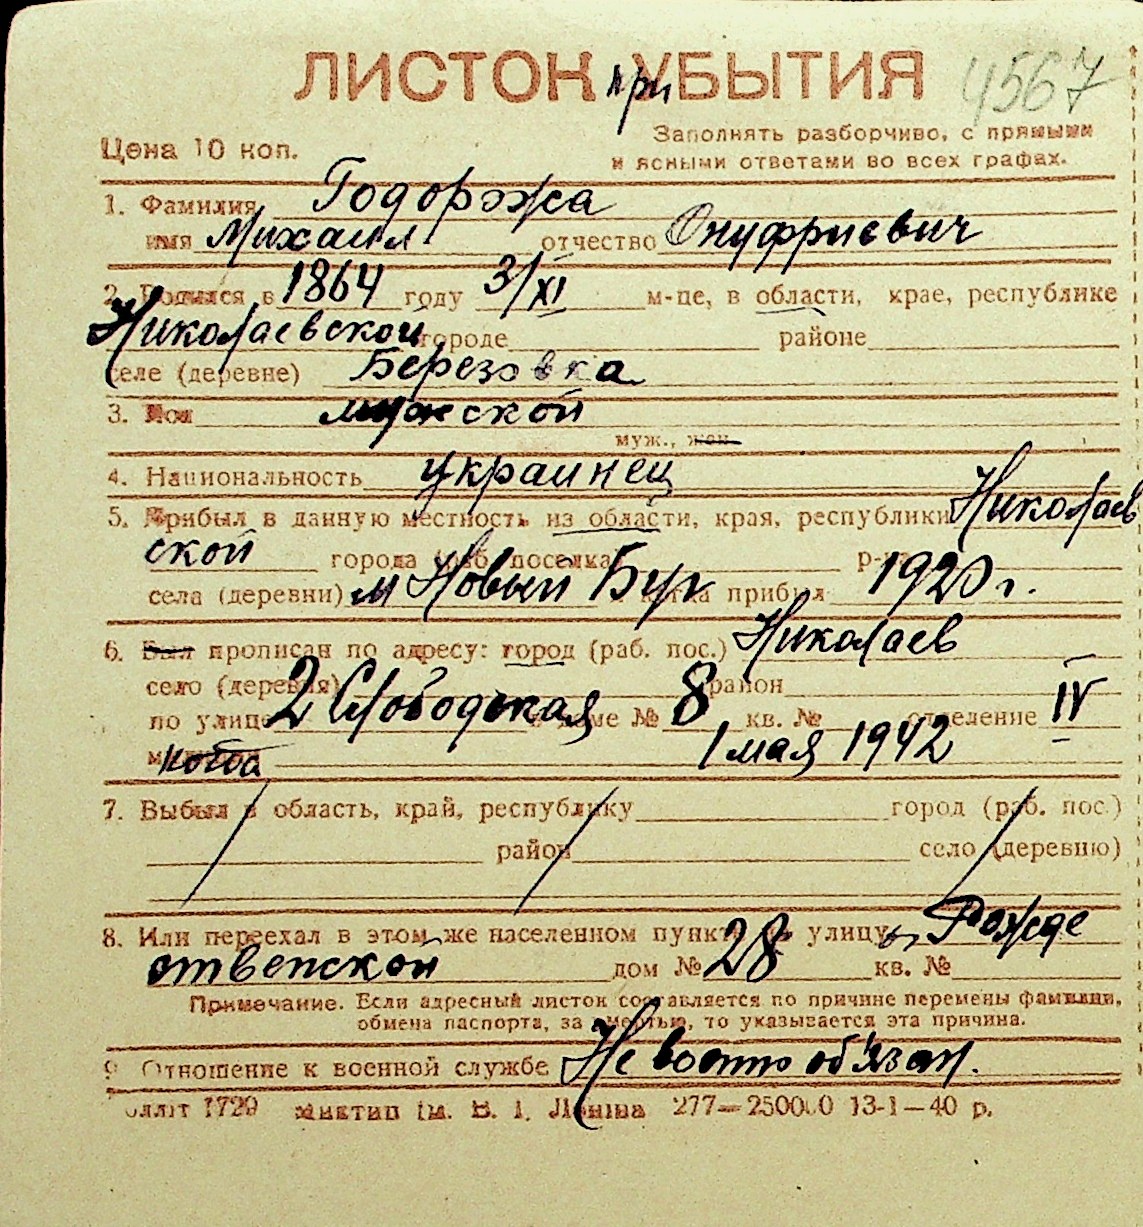 ЛИСТОК при УБЫТИЯ 4567
Цена 10 коп. Заполнять разборчиво, с прямыми
и ясными ответами во всех графах.
1. Фамилия Годорожа
имя Михаил отчество Онуфриевич
2. Родился в 1864 году 3/XI м-це, в области, крае, республике
Николаевской городе районе
селе (деревне) Березовка
3. Пол мужской
муж., жен.
4. Национальность украинец
5. Прибыл в данную местность из области, края, республики Николаев
ской города (раб. поселка) р-на
села (деревни) м Новый Буг когда прибыл 1920 г.
6. Был прописан по адресу: город (раб. пос.) Николаев
село (деревня) район
по улице 2 Слободская доме № 8 кв. № отделение IV
1 мая 1942
7. Выбыл в область, край, республику город (раб. пос.)
район село (деревню)
8. Или переехал в этом же населенном пункте улицу Рожде
ственской дом № 28 кв. №
Примечание. Если адресный листок составляется по причине перемены фамилии,
обмена паспорта, за смертью, то указывается эта причина.
9. Отношение к военной службе Не военнообязан.
1729 ім. В. І. Леніна 277—250000 13-1—40 р.